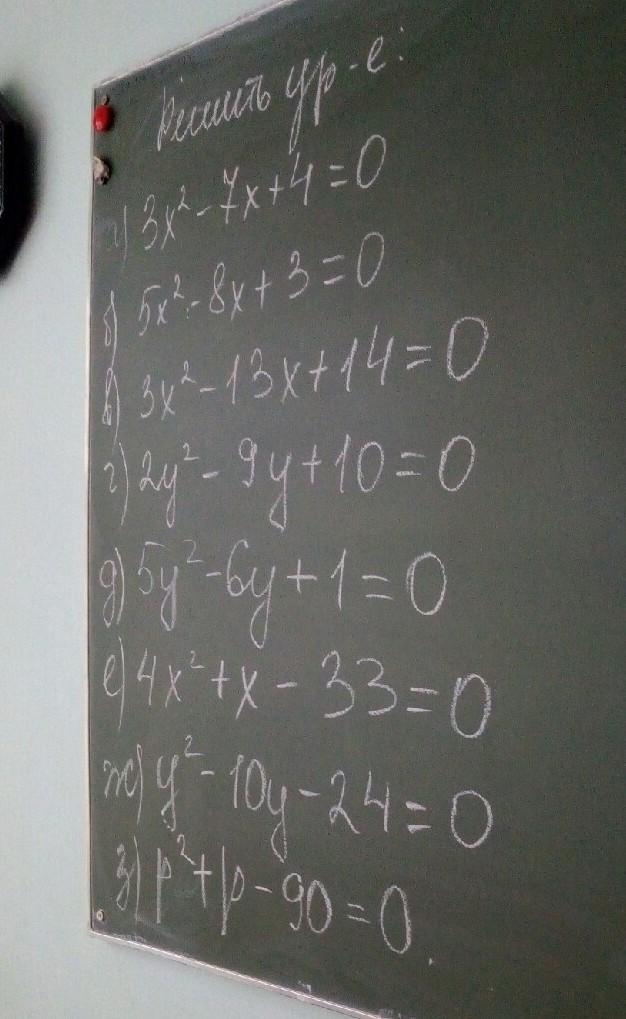 Решить ур-е:
а) 3x² - 7x + 4 = 0
б) 5x² - 8x + 3 = 0
в) 3x² - 13x + 14 = 0
г) 2y² - 9y + 10 = 0
д) 5y² - 6y + 1 = 0
е) 4x² + x - 33 = 0
ж) y² - 10y - 24 = 0
з) p² + p - 90 = 0.